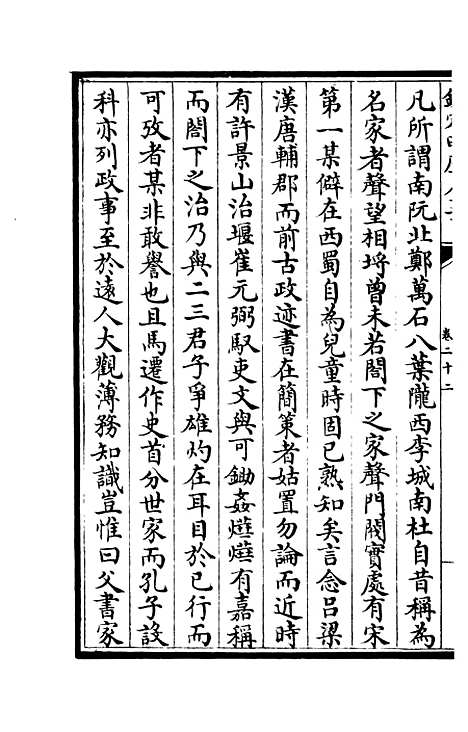 凡所謂南阮北鄭萬石八葉隴西李城南杜自昔稱為
名家者聲望相埒曾未若閤下之家聲門閥實處有宋
第一某僻在西蜀自為兒童時固已熟知矣言念呂梁
漢唐輔郡而前古政迹書在簡策者姑置勿論而近時
有許景山治堰崔元弼馭吏文與可鋤姦㷸㷸有嘉稱
而閤下之治乃與二三君子爭雄灼在耳目於已行而
可攷者某非敢譽也且馬遷作史首分世家而孔子設
科亦列政事至於遠人大觀薄務知識豈惟曰父書家
卷二十二